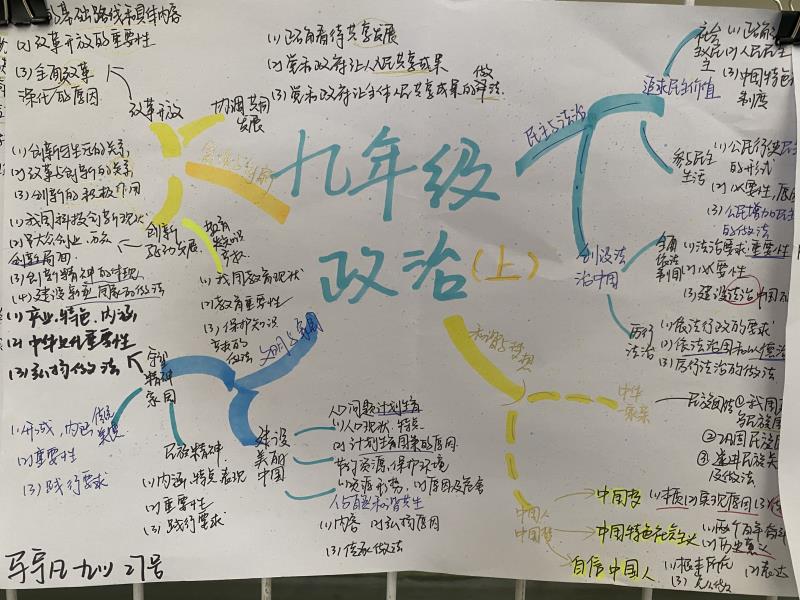 的基础路线和具体内容
(2) 改革开放的重要性
(3) 全面改革
深化的原因
改革开放
(1) 正确看待共享发展
(2) 党和政府让人民共享成果
(3) 党和政府让全体人民共享成果的做法
协调共同
发展
(1) 创新与生活的关系
(2) 改革与创新的关系
(3) 创新的积极作用
(1) 我国科技创新现状
(2) 大众创业、万众
创新局面
(3) 创新精神的体现
(4) 建设创新型国家的做法
创新
驱动发展
(1) 我国教育现状
(2) 教育重要性
(3) 保护知识
产权的
做法
九年级
政治
(上)
民主与法治
追求民主价值
社会
主义民
主
(2) 人民民主
(3) 中国特色
制度
参与民主
生活
(1) 公民行使民主
的形式
(2) 必要性,原
(3) 公民增加民主
的做法
创设法
治中国
全面
依法
治国
(1) 法治要求 重要性
(2) 必要性
(3) 建设法治中国
厉行
法治
(1) 依法行政的要求
(2) 依法治国和以德治
(3) 厉行法治的做法
和谐与梦想
中华
一家亲
民族团结 ① 我国
② 巩固民族
③ 促进民族关
及做法
中国人
中国梦
中国梦
(1) 本质 (2) 实现原因 (3)
中国特色社会主义
(1) 两个百年
(2) 历史意义
自信中国人
(1) 根本所在 (2) 表达
(3) 怎么做
文明与家园
守望
精神
家园
(2) 中华文化重要性
(3) 弘扬做法
(1) 形成,内涵
(2) 重要性
(3) 践行要求
民族精神
(1) 内涵,特点 表现
(2) 重要性
(3) 践行要求
建设
美丽
中国
人口问题 计划生育
(1) 人口现状,特点
(2) 计划生育国策的原因
节约资源,保护环境
(1) 资源形势,(2) 原因及危害
人与自然和谐共生
(1) 内容 (2) 弘扬原因
(3) 传承做法
27号